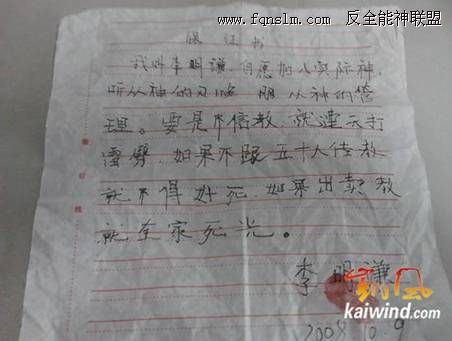 www.fqnslm.com 反全能神联盟
保证书
我叫李明谦,自愿加入实际神,
听从神的召唤 服从神的管
理。要是不信教,就遭天打
雷劈,如果不跟五十人传教
就不得好死,如果出卖教
就全家死光。
李明谦
2008.10.9
凯风
kaiwind.com